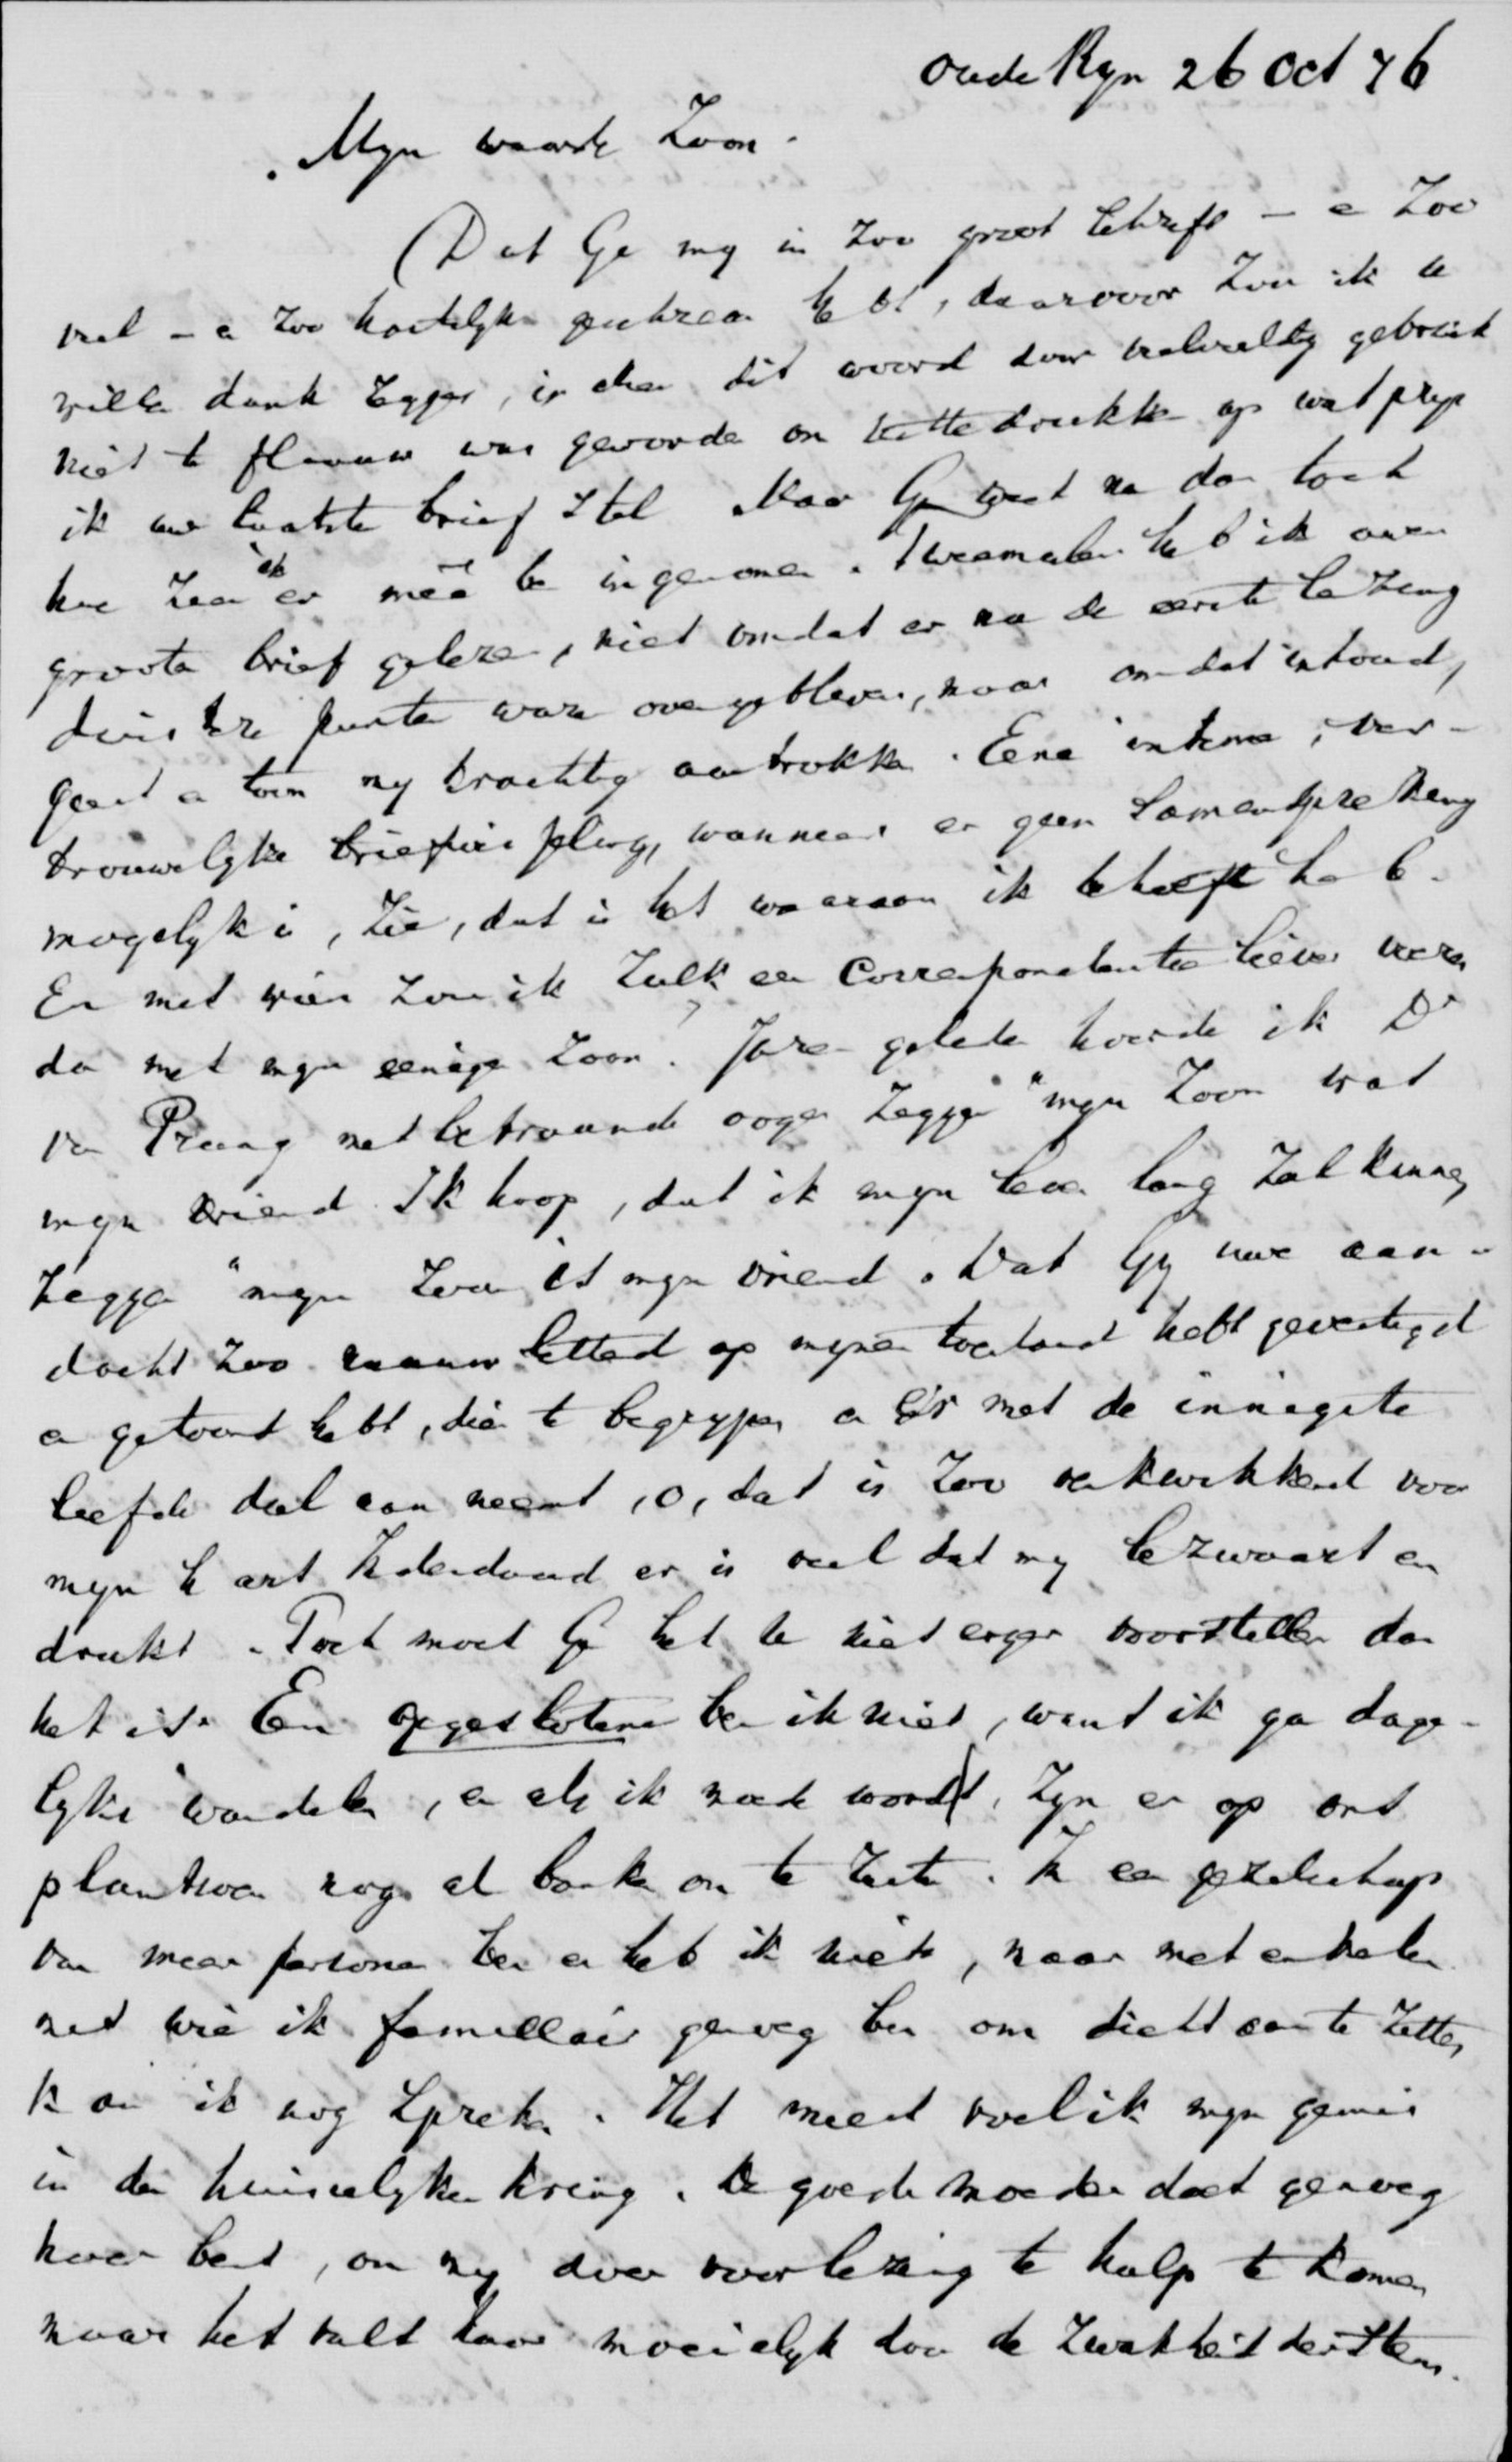 Oude Ryn 26 Oct 76
Myn waarde Zoon.
Dat Ge my in zoo groot schrift - en zoo
veel - en zoo hartelyk geschreven hebt, daarvoor zou ik u
willen dank zeggen, indien dit woord door veelvuldig gebruik
niet te flaauw was geworden om uittedrukken op wat prys
ik uw laatste brief stel. Maar Gy weet nu dan toch
hoe zeer ik er meê ben ingenomen. Tweemalen heb ik uwen
grooten brief gelezen, niet omdat er na de eerste lezing
duistere punten waren overgebleven, maar omdat inhoud,
geest en toon my krachtig aantrokken. Eene intieme, ver-
trouwelyke briefwisseling, wanneer er geen zamenspreking
mogelyk is, zie, dat is het waaraan ik behoefte heb.
En met wien zou ik zulk een Correspondentie liever voeren
dan met myn eenigen Zoon. Jaren geleden hoorde ik Dr
van Praag met betraande oogen zeggen "myn Zoon was
myn vriend. Ik hoop, dat ik myn leven lang zal kunnen
zeggen "myn Zoon is myn vriend. Dat Gy uwe aan-
dacht zoo naauwlettend op mynen toestand hebt gevestigd
en getoond hebt, dien te begrypen en er met de innigste
liefde deel aan neemt, o, dat is zoo verkwikkend voor
myn hart. Inderdaad er is veel dat my bezwaart en
drukt. Toch moet Gy het u niet erger voorstellen dan
het is. Een opgeslotene ben ik niet, want ik ga dage-
lyks wandelen, en als ik moede wordt, zyn er op ons
plantsoen nog al banken om te zitten. In een gezelschap
van meer personen ben en heb ik niets, maar met enkelen
met wie ik familiair genoeg ben om dicht aan te zitten,
kan ik nog spreken. Het meest voel ik myn gemis
in den huisselyken kring. De goede moeder doet genoeg
haar best, om my door voorlezing te hulp te komen,
maar het valt haar moeielyk door de zwakheid der stem.